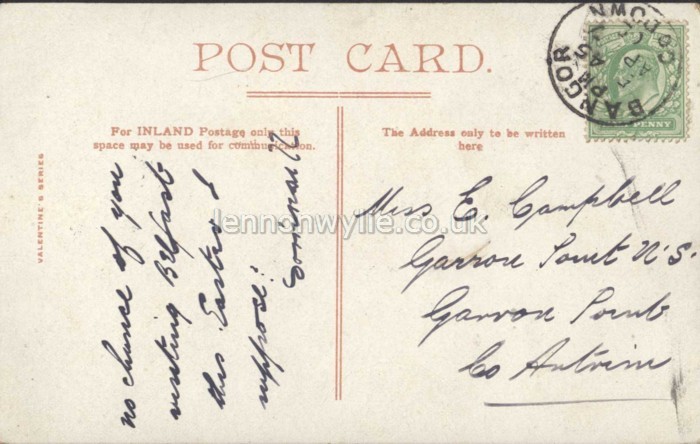 POST CARD.
For INLAND Postage only this
space may be used for communication.
The Address only to be written
here
VALENTINE'S SERIES
no chance of you
visiting Belfast
this Easter I
suppose.
Miss E. Campbell
Garron Point N.S.
Garron Point
Co Antrim
BANGOR
CO. DOWN
PENNY
lennonwylie.co.uk